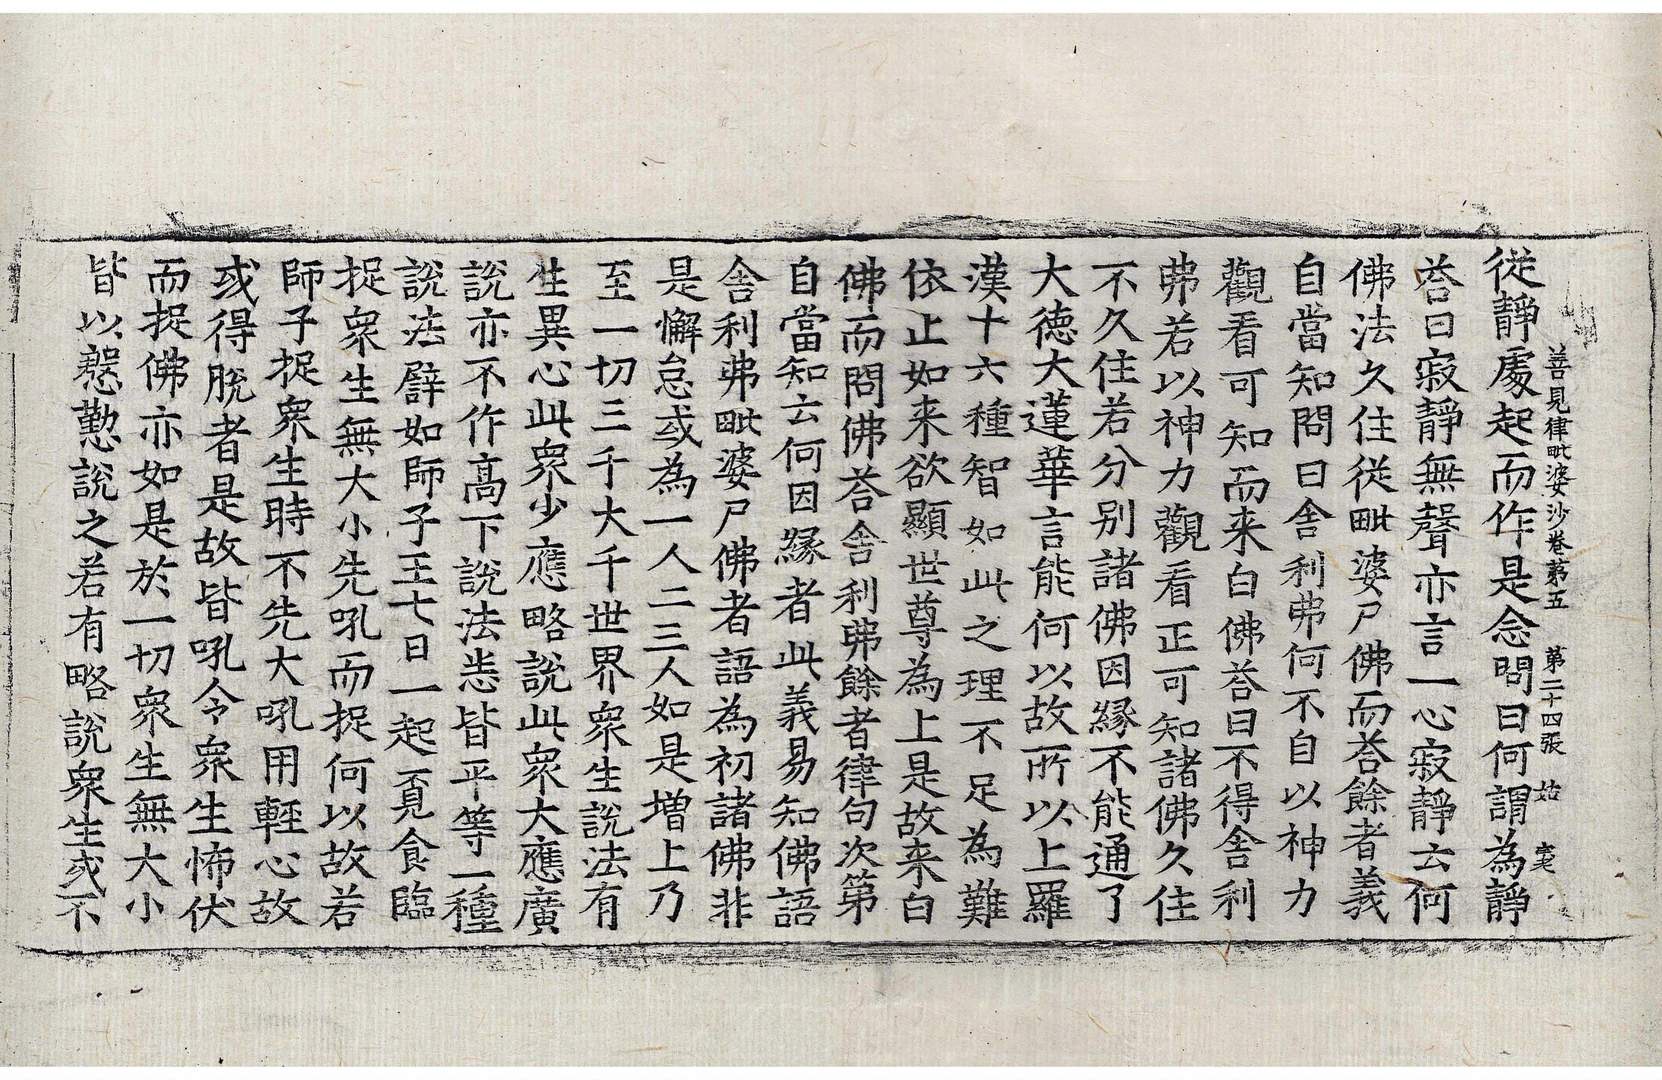 善見律毗婆沙卷第五　第二十四張　姑
從靜處起而作是念問曰何謂為靜
荅曰寂靜無聲亦言一心寂靜云何
佛法久住從毗婆尸佛而荅餘者義
自當知問曰舍利弗何不自以神力
觀看可知而来白佛荅曰不得舍利
弗若以神力觀看正可知諸佛久住
不久住若分别諸佛因縁不能通了
大德大蓮華言能何以故所以上羅
漢十六種智如此之理不足為難
依止如来欲顯世尊為上是故来白
佛而問佛荅舍利弗餘者律句次第
自當知云何因縁者此義易知佛語
舍利弗毗婆尸佛者語為初諸佛非
是懈怠或為一人二三人如是增上乃
至一切三千大千世界衆生說法有
生異心此衆少應略說此衆大應廣
說亦不作高下說法悉皆平等一種
說法譬如師子王七日一起覔食臨
捉衆生無大小先吼而捉何以故若
師子捉衆生時不先大吼用輕心故
或得脫者是故皆吼令衆生怖伏
而捉佛亦如是於一切衆生無大小
皆以慇懃說之若有略說衆生或不